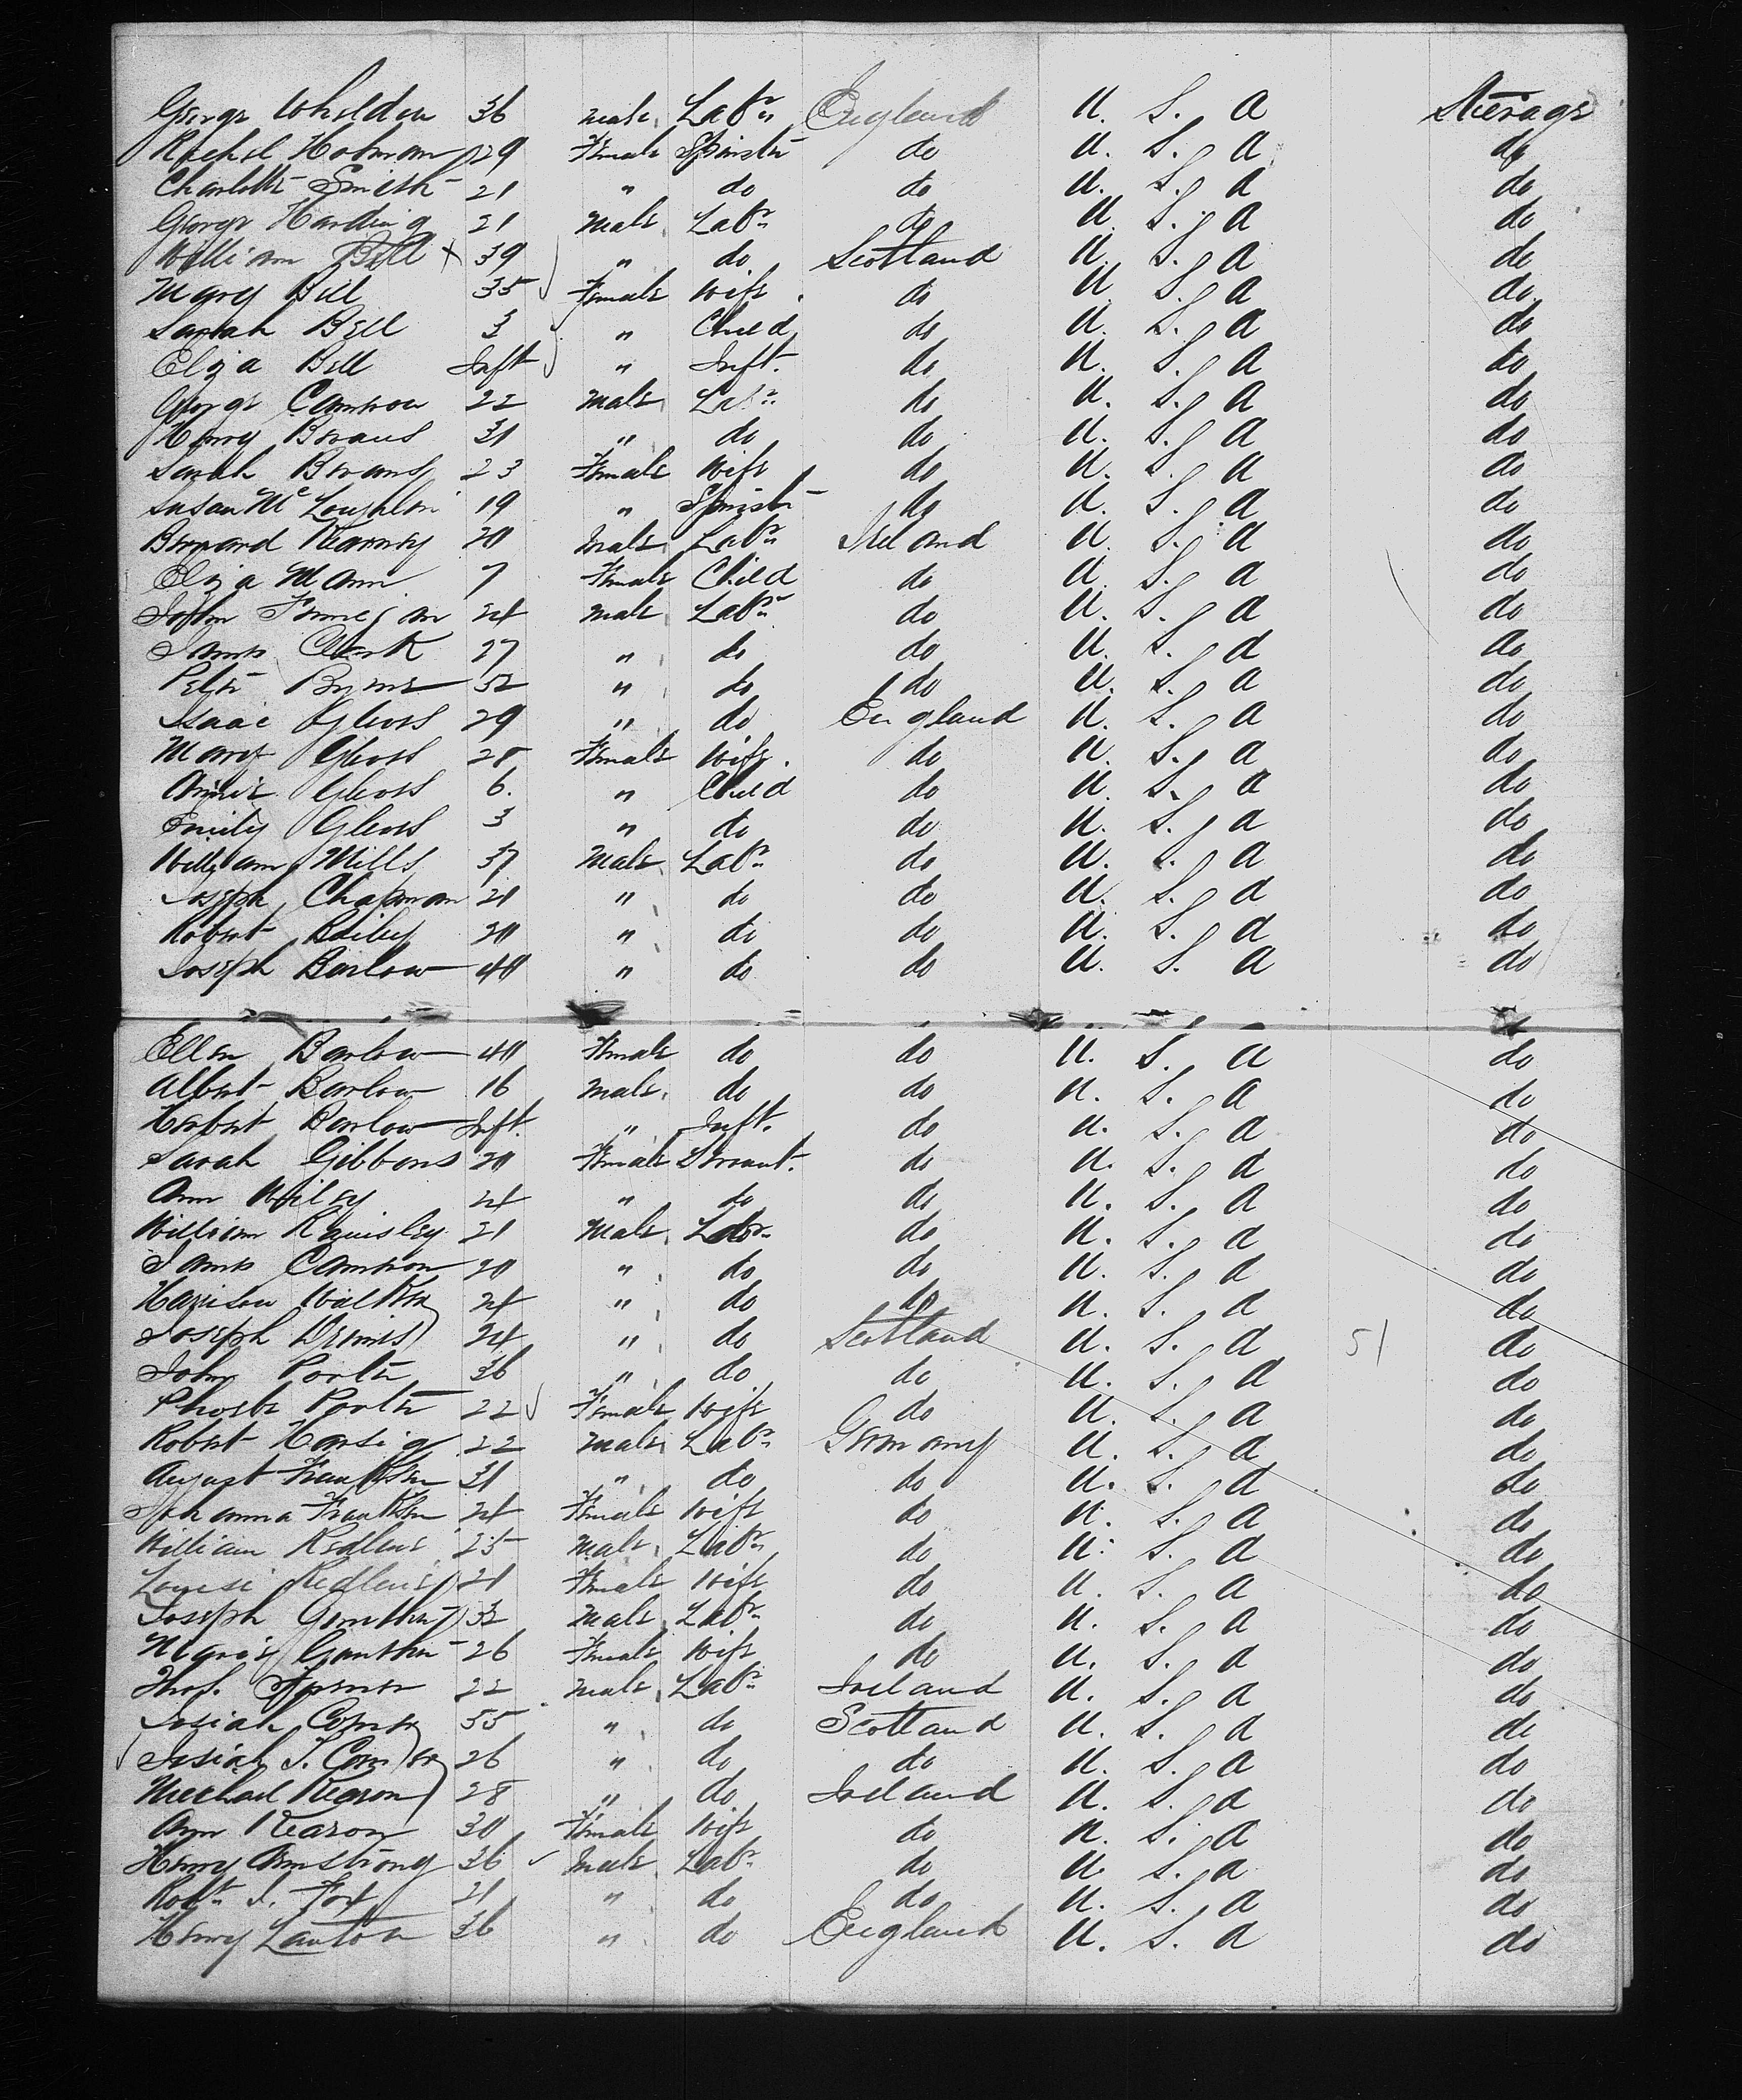 George Wheldon 36 male Labr England U. S. A Steerage
Rachel Holman 29 Female Spinster do U. S. A do
Charlotte Smith 21 " do do U. S. A do
George Harding 21 Male Labr do U. S. A do
William Bell x 39 " do Scotland U. S. A do
Mary Bell 35 Female Wife do U. S. A do
Sarah Bell 3 " Child do U. S. A do
Eliza Bell Inft " Inft. do U. S. A do
George Cameron 22 Male Labr do U. S. A do
Henry Bevans 31 " do do U. S. A do
Sarah Bevans 23 Female Wife do U. S. A do
Susan McLoughlin 19 " Spinster do U. S. A do
Bernard Kearney 20 Male Labr Ireland U. S. A do
Eliza Mann 7 Female Child do U. S. A do
John Finnegan 24 Male Labr do U. S. A do
James Clark 27 " do do U. S. A do
Peter Byrne 32 " do do U. S. A do
Isaac Gloss 29 " do England U. S. A do
Mary Gloss 28 Female Wife do U. S. A do
Annie Gloss 6. " Child do U. S. A do
Emily Gloss 3 " do do U. S. A do
William Mills 37 Male Labr do U. S. A do
Joseph Chapman 21 " do do U. S. A do
Robert Bailey 20 " do do U. S. A do
Joseph Barlow 40 " do do U. S. A do
Ellen Barlow 40 Female do do U. S. A do
Albert Barlow 16 Male do do U. S. A do
Herbert Barlow Inft. " Inft. do U. S. A do
Sarah Gibbons 20 Female Servant. do U. S. A do
Ann Wiley 24 " do do U. S. A do
William 21 Male Labr do U. S. A do
James Cameron 20 " do do U. S. A do
Harrison Walker 24 " do do U. S. A do
Joseph Dennis 24 " do Scotland U. S. A 51 do
John Porter 36 " do do U. S. A do
Phoebe Porter 22 Female Wife do U. S. A do
Robert 22 Male Labr Germany U. S. A do
August 31 " do do U. S. A do
Johanna 24 Female Wife do U. S. A do
William 25 Male Labr do U. S. A do
21 Female Wife do U. S. A do
Joseph 32 Male Labr do U. S. A do
26 Female Wife do U. S. A do
Thos. 22 Male Labr Ireland U. S. A do
Josiah 55 " do Scotland U. S. A do
Josiah 26 " do do U. S. A do
Michael Kearon 28 " do Ireland U. S. A do
Ann Kearon 30 Female Wife do U. S. A do
Henry Armstrong 36 Male Labr do U. S. A do
Robt J. Fox 21 " do do U. S. A do
Henry Lawton 36 " do England U. S. A do